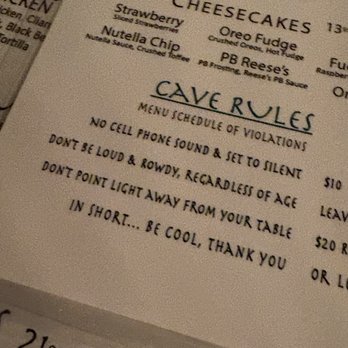 CHEESECAKES
Strawberry
Sliced Strawberries
Oreo Fudge
Crushed Oreos, Hot Fudge
Nutella Chip
Nutella Sauce, Crushed Toffee
PB Reese's
PB Frosting, Reese's PB Sauce
CAVE RULES
MENU SCHEDULE OF VIOLATIONS
NO CELL PHONE SOUND & SET TO SILENT $10
DON'T BE LOUD & ROWDY, REGARDLESS OF AGE LEAV
DON'T POINT LIGHT AWAY FROM YOUR TABLE $20 R
IN SHORT... BE COOL, THANK YOU OR L